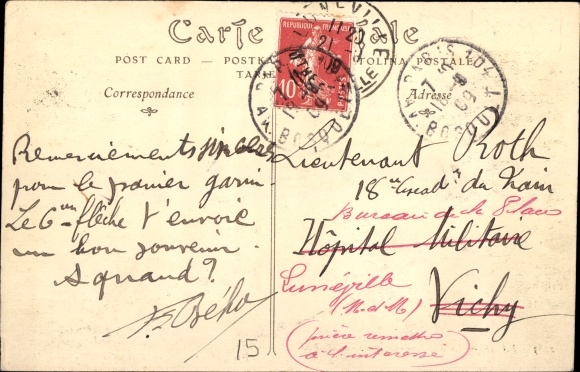 Carte Postale
POST CARD — POSTK
TOLINA POSTALE
Correspondance
Adresse
REPUBLIQUE FRANÇAISE
10
POSTES
PARIS 104
09
Remerciements sincères
pour le premier garin
Le 6me flèche t'envoie
un bon souvenir.
A quand?
15
Lieutenant Roth
18me Escad. du Train
Bureau de la Place
Hôpital Militaire
Lunéville
(M-et-M) Vichy
prière remettre
à l'intéressé